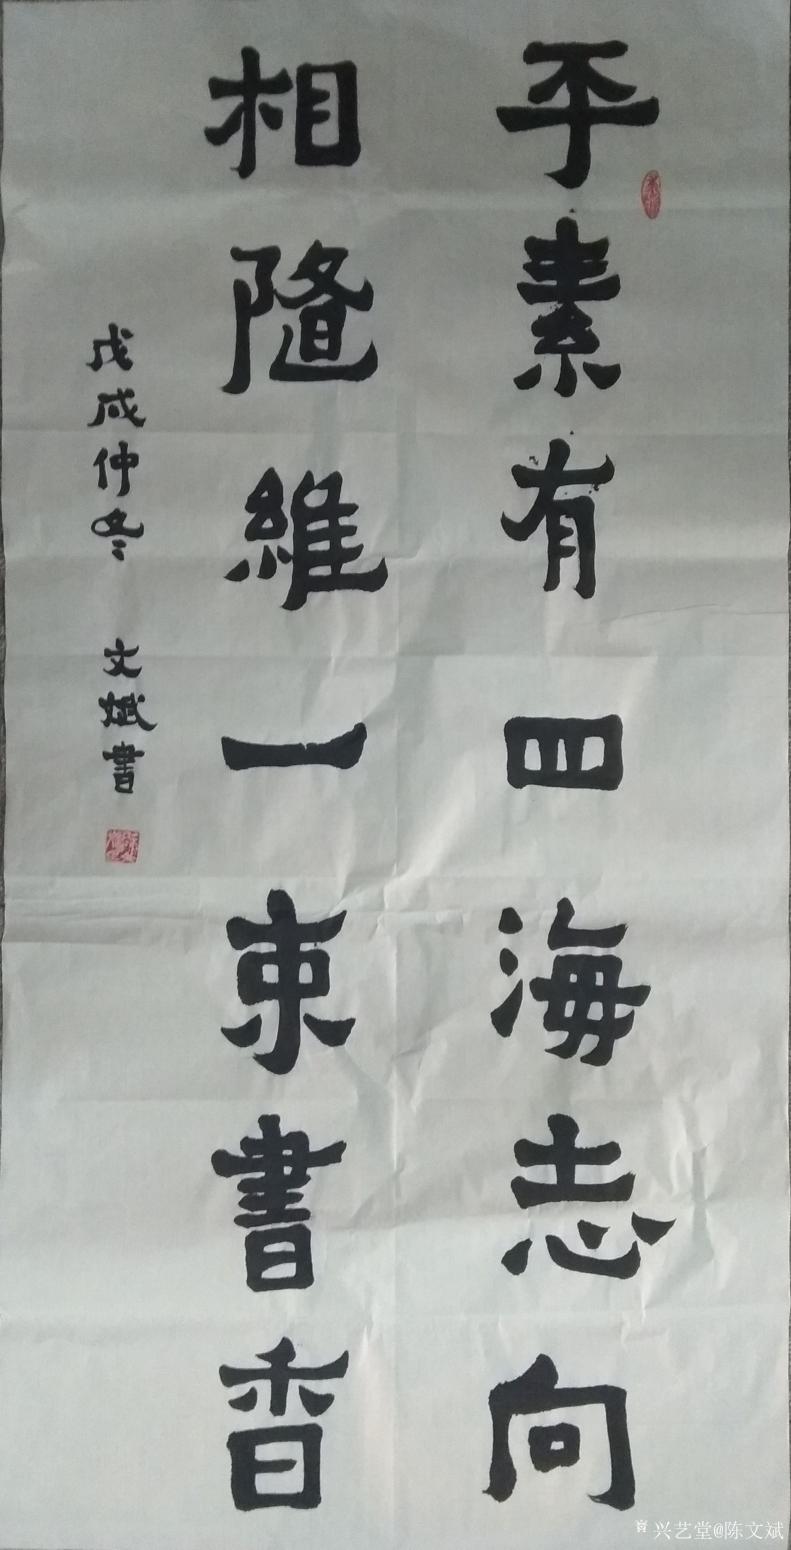 平素有四海志向
相隨維一束書香
戊戌仲冬 文斌書
兴艺堂@陈文斌